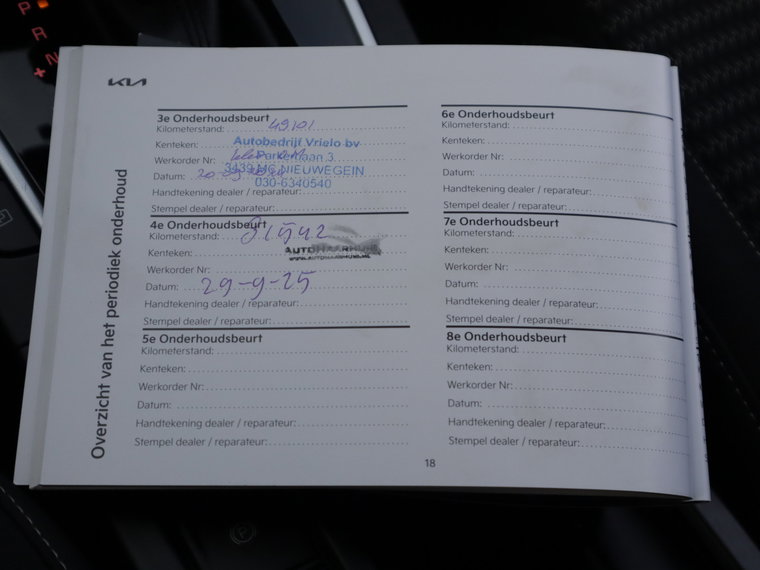 P
R
N
+
KIA
Overzicht van het periodiek onderhoud
3e Onderhoudsbeurt
Kilometerstand: 49.101
Kenteken:
Autobedrijf Vrielo bv
Werkorder Nr:
Parkerbaan 3
Datum:
3439 MC NIEUWEGEIN
Handtekening dealer / reparateur:
030-6340540
Stempel dealer / reparateur:
4e Onderhoudsbeurt
Kilometerstand:
Kenteken:
AUTOHAARHUIS
Werkorder Nr:
Datum: 29-9-25
Handtekening dealer / reparateur:
Stempel dealer / reparateur:
5e Onderhoudsbeurt
Kilometerstand:
Kenteken:
Werkorder Nr:
Datum:
Handtekening dealer / reparateur:
Stempel dealer / reparateur:
6e Onderhoudsbeurt
Kilometerstand:
Kenteken:
Werkorder Nr:
Datum:
Handtekening dealer / reparateur:
Stempel dealer / reparateur:
7e Onderhoudsbeurt
Kilometerstand:
Kenteken:
Werkorder Nr:
Datum:
Handtekening dealer / reparateur:
Stempel dealer / reparateur:
8e Onderhoudsbeurt
Kilometerstand:
Kenteken:
Werkorder Nr:
Datum:
Handtekening dealer / reparateur:
Stempel dealer / reparateur:
18